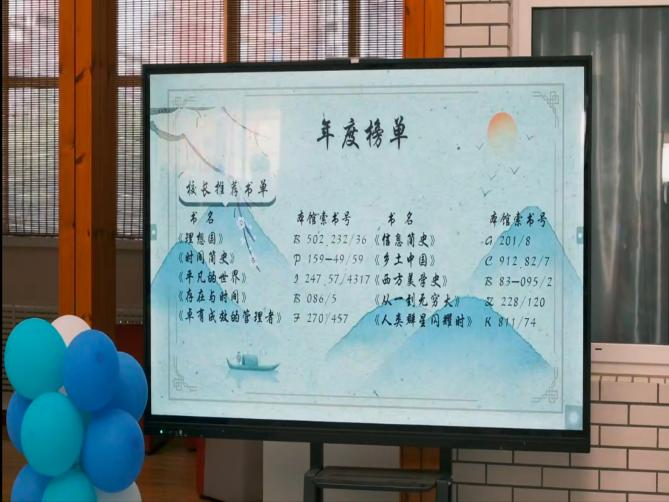 年度榜单
校长推荐书单
书名 本馆索书号 书名 本馆索书号
《理想国》 B 502.232/36 《信息简史》 G 201/8
《时间简史》 P 159-49/59 《乡土中国》 C 912.82/7
《平凡的世界》 I 247.57/4317 《西方美学史》 B 83-095/2
《存在与时间》 B 086/5 《从一到无穷大》 Z 228/120
《卓有成效的管理者》 F 270/457 《人类群星闪耀时》 K 811/74